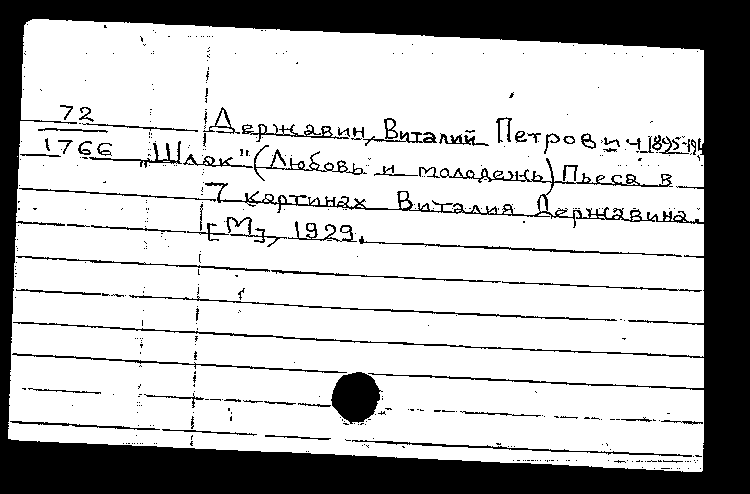 72
Державин, Виталий Петрович 1895-194
1766 „Шлак" (Любовь и молодежь) Пьеса в
7 картинах Виталия Державина.
[М], 1929.